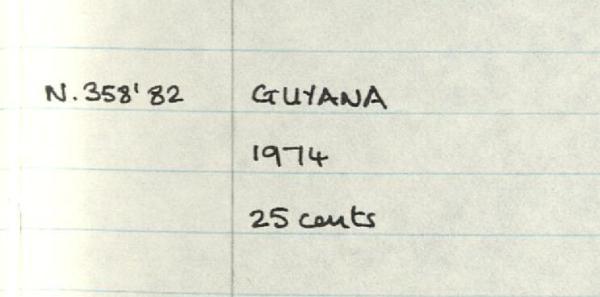 N.358'82 GUYANA
1974
25 cents